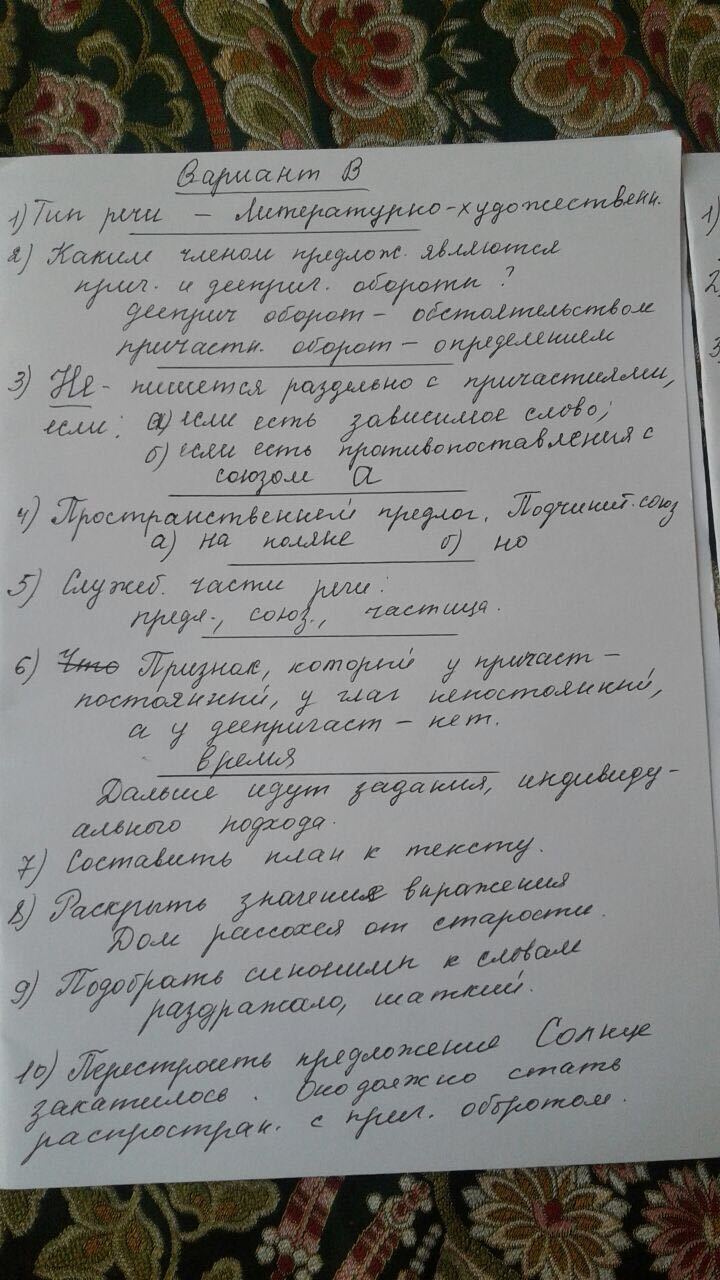 Вариант В
1) Тип речи – Литературно-художественн.
2) Каким членом предлож. являются
прич. и дееприч. обороты?
дееприч оборот – обстоятельством
причастн. оборот – определением
3) Не - пишется раздельно с причастиями,
если: а) если есть зависимое слово;
б) если есть противопоставления с
союзом а
4) Пространственный предлог. Подчинит. союз
а) на поляне б) но
5) Служеб. части речи:
предл., союз., частица.
6) Что Признак, который у причаст –
постоянный, у глаг непостоянный,
а у деепричаст – нет.
время
Дальше идут задания, индивиду-
ального подхода.
7) Составить план к тексту.
8) Раскрыть значение выражения
Дом рассохся от старости.
9) Подобрать синонимы к словам
раздражало, шаткий.
10) Перестроить предложение Солнце
закатилось. Оно должно стать
распростран. с прич. оборотом.
1)
2,
3